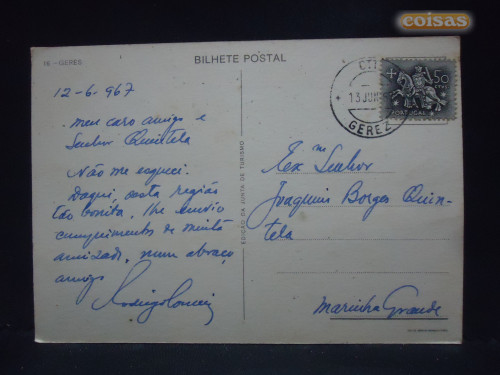 coisas
16 - GERES
BILHETE POSTAL
12-6-967
Meu caro amigo e
Senhor Quintela
Não me esqueci.
Daqui, desta região
tão bonita, lhe envio
cumprimentos de muita
amizade, num abraço
amigo
EDIÇÃO DA JUNTA DE TURISMO
CTT
13 JUN
GEREZ
50
PORTUGAL
Exmo Senhor
Joaquim Borges Quin-
tela
Marinha Grande